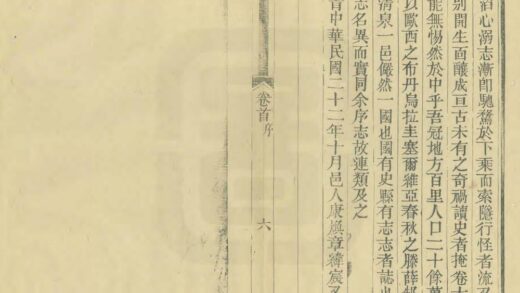 心溺志漸卽馳騖於下乘而索隱行怪者流
别開生面釀成亘古未有之奇禍讀史者掩卷
能無惕然於中乎吾冠地方百里人口二十餘萬
以歐西之布丹烏拉圭塞爾維亞春秋之滕薛
清泉一邑儼然一國也國有史縣有志志者誌也
志名異而實同余序志故連類及之
中華民國二十二年十月邑人康煥章緯宸
卷首 序
六